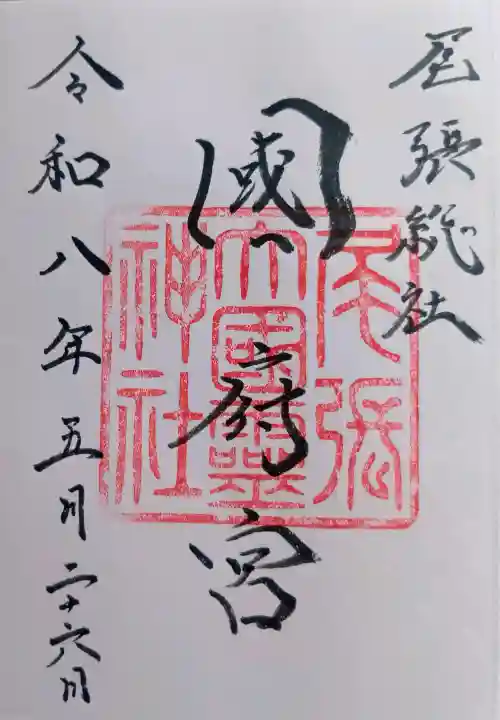 尾張総社
國府宮
令和八年五月二十六日
尾張
大國霊
神社